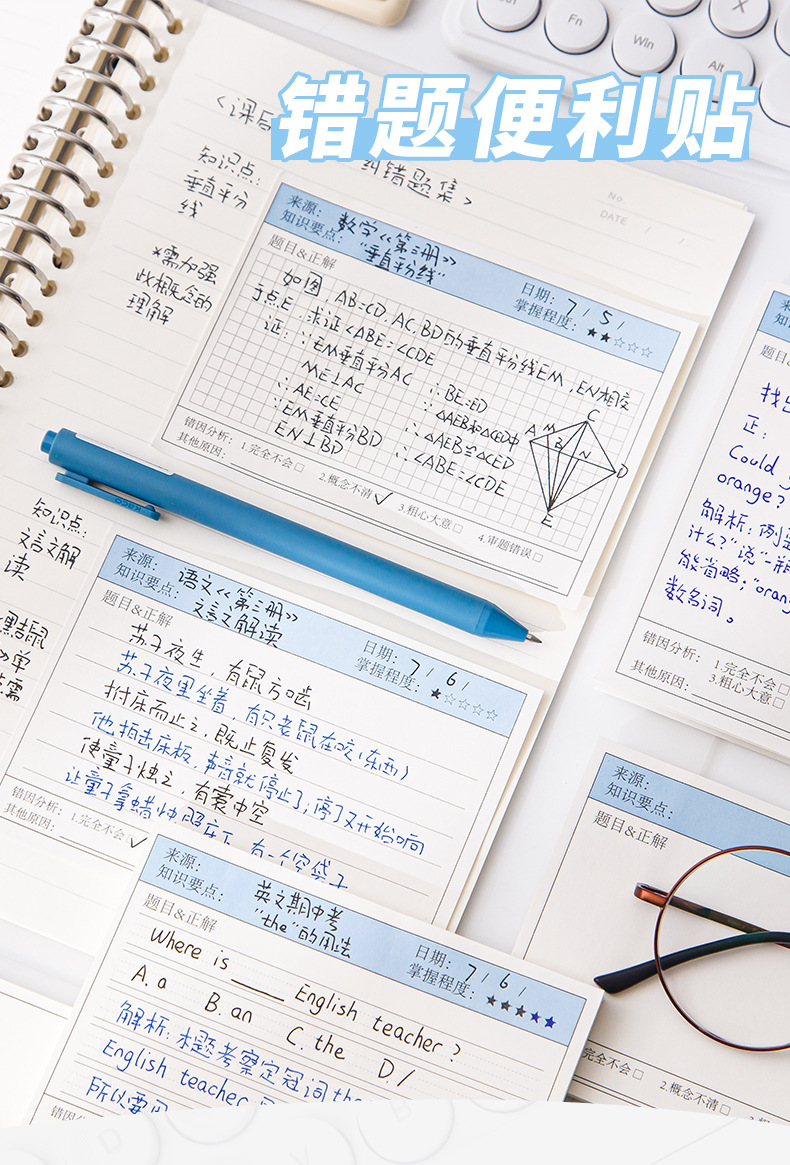 错题便利贴
Fn
Win
Alt
X
<课后
纠错题集>
No.
DATE / /
知识点:
垂直平分
线
*需加强
此概念的
理解
来源: 数学《第三册》
知识要点: "垂直平分线"
日期: 7/5/
掌握程度: ★★☆☆☆
题目&正解
如图, AB=CD, AC, BD的垂直平分线EM, EN相交
于点E, 求证∠ABE=∠CDE
证: ∵EM垂直平分AC
ME⊥AC
∴AE=CE
∵EM垂直平分BD
EN⊥BD
∴BE=ED
∵△AEB和△CED中
∴△AEB≌△CED
∴∠ABE=∠CDE
A M B N C D E
错因分析: 1.完全不会□ 2.概念不清□✓ 3.粗心大意□ 4.审题错误□
其他原因:
KACO
知识点:
文言文解
读
来源: 语文《第三册》
知识要点: 文言文解读
日期: 7/6/
掌握程度: ★☆☆☆☆
题目&正解
苏子夜坐, 有鼠方啮
苏子夜里坐着, 有只老鼠在咬(东西)
拊床而止之, 既止复发
他拍击床板, 声音就停止了, 停了又开始响
使童子烛之, 有橐中空
让童子拿蜡烛照床下, 有一个空袋子
错因分析: 1.完全不会□✓
其他原因:
来源: 英文期中考
知识要点: "the"的用法
日期: 7/6/
掌握程度: ★★★★★
题目&正解
Where is ____ English teacher?
A. a B. an C. the D. /
解析: 本题考察定冠词the
English teacher
所以要用
题目
找出
正:
Could
orange?
解析:
什么?"说"一
能省略; "orang
数名词。
错因分析: 1.完全不会□
3.粗心大意□
其他原因:
来源:
知识要点:
题目&正解
完全不会□ 2.概念不清□